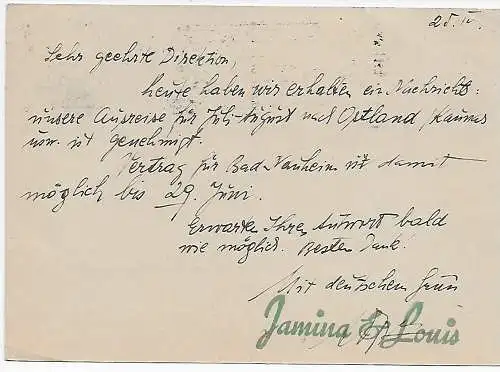 25. IV.
Sehr geehrte Direktion,
heute haben wir erhalten ein Nachricht:
unsere Ausreise für Juli-August nach Ostland /Kaunas
usw. ist genehmigt.
Vertrag für Bad-Nauheim ist damit
möglich bis 29. Juni.
Erwarten Ihren Antwort bald
wie möglich. Besten Dank!
Mit deutschem Gruss
Jamina & Louis